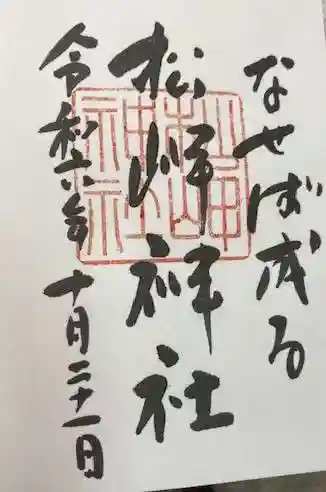 なせば成る
松岬神社
令和六年 十月二十一日